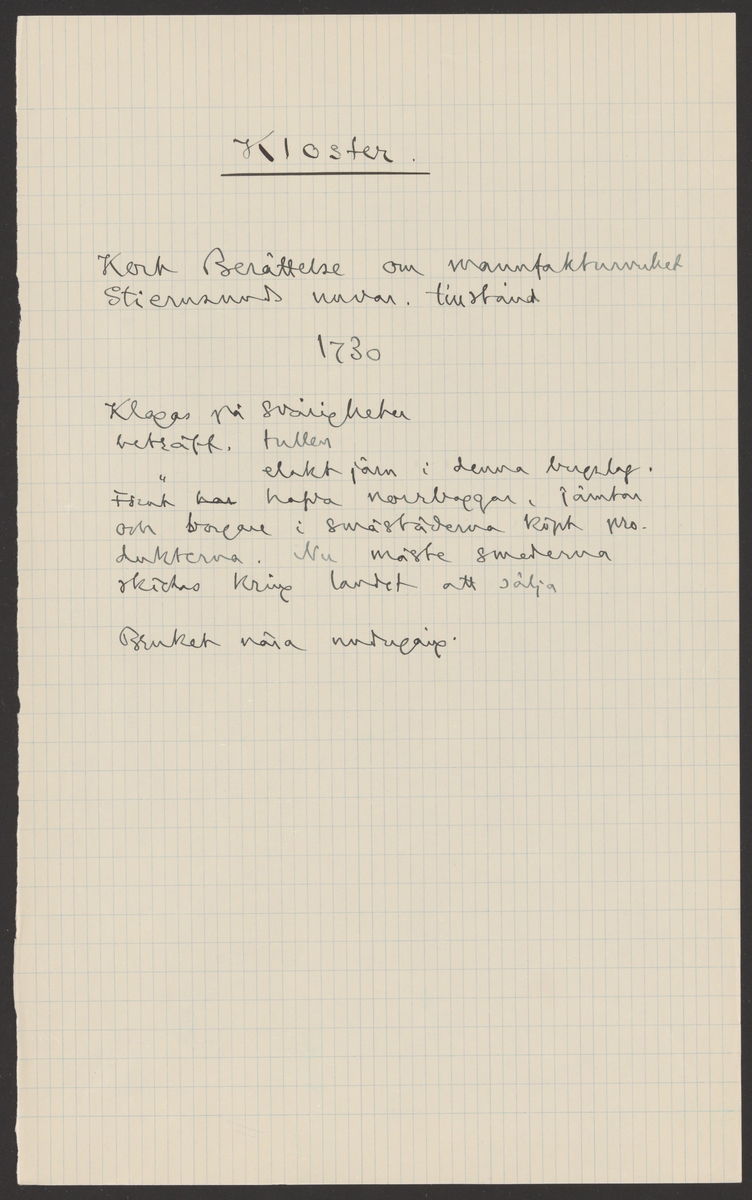 Kloster.
Kort Berättelse om manufakturverket
Stiernsunds nuvar. tillstånd
1730
Klagas på svårigheter
beträff. tullen
" elakt järn i denna bergslag.
Förut har hafva norrbaggar, Jämtar
och borgare i småstäderna köpt pro-
dukterna. Nu måste smederna
skickas kring landet att sälja
Bruket nära undergång.